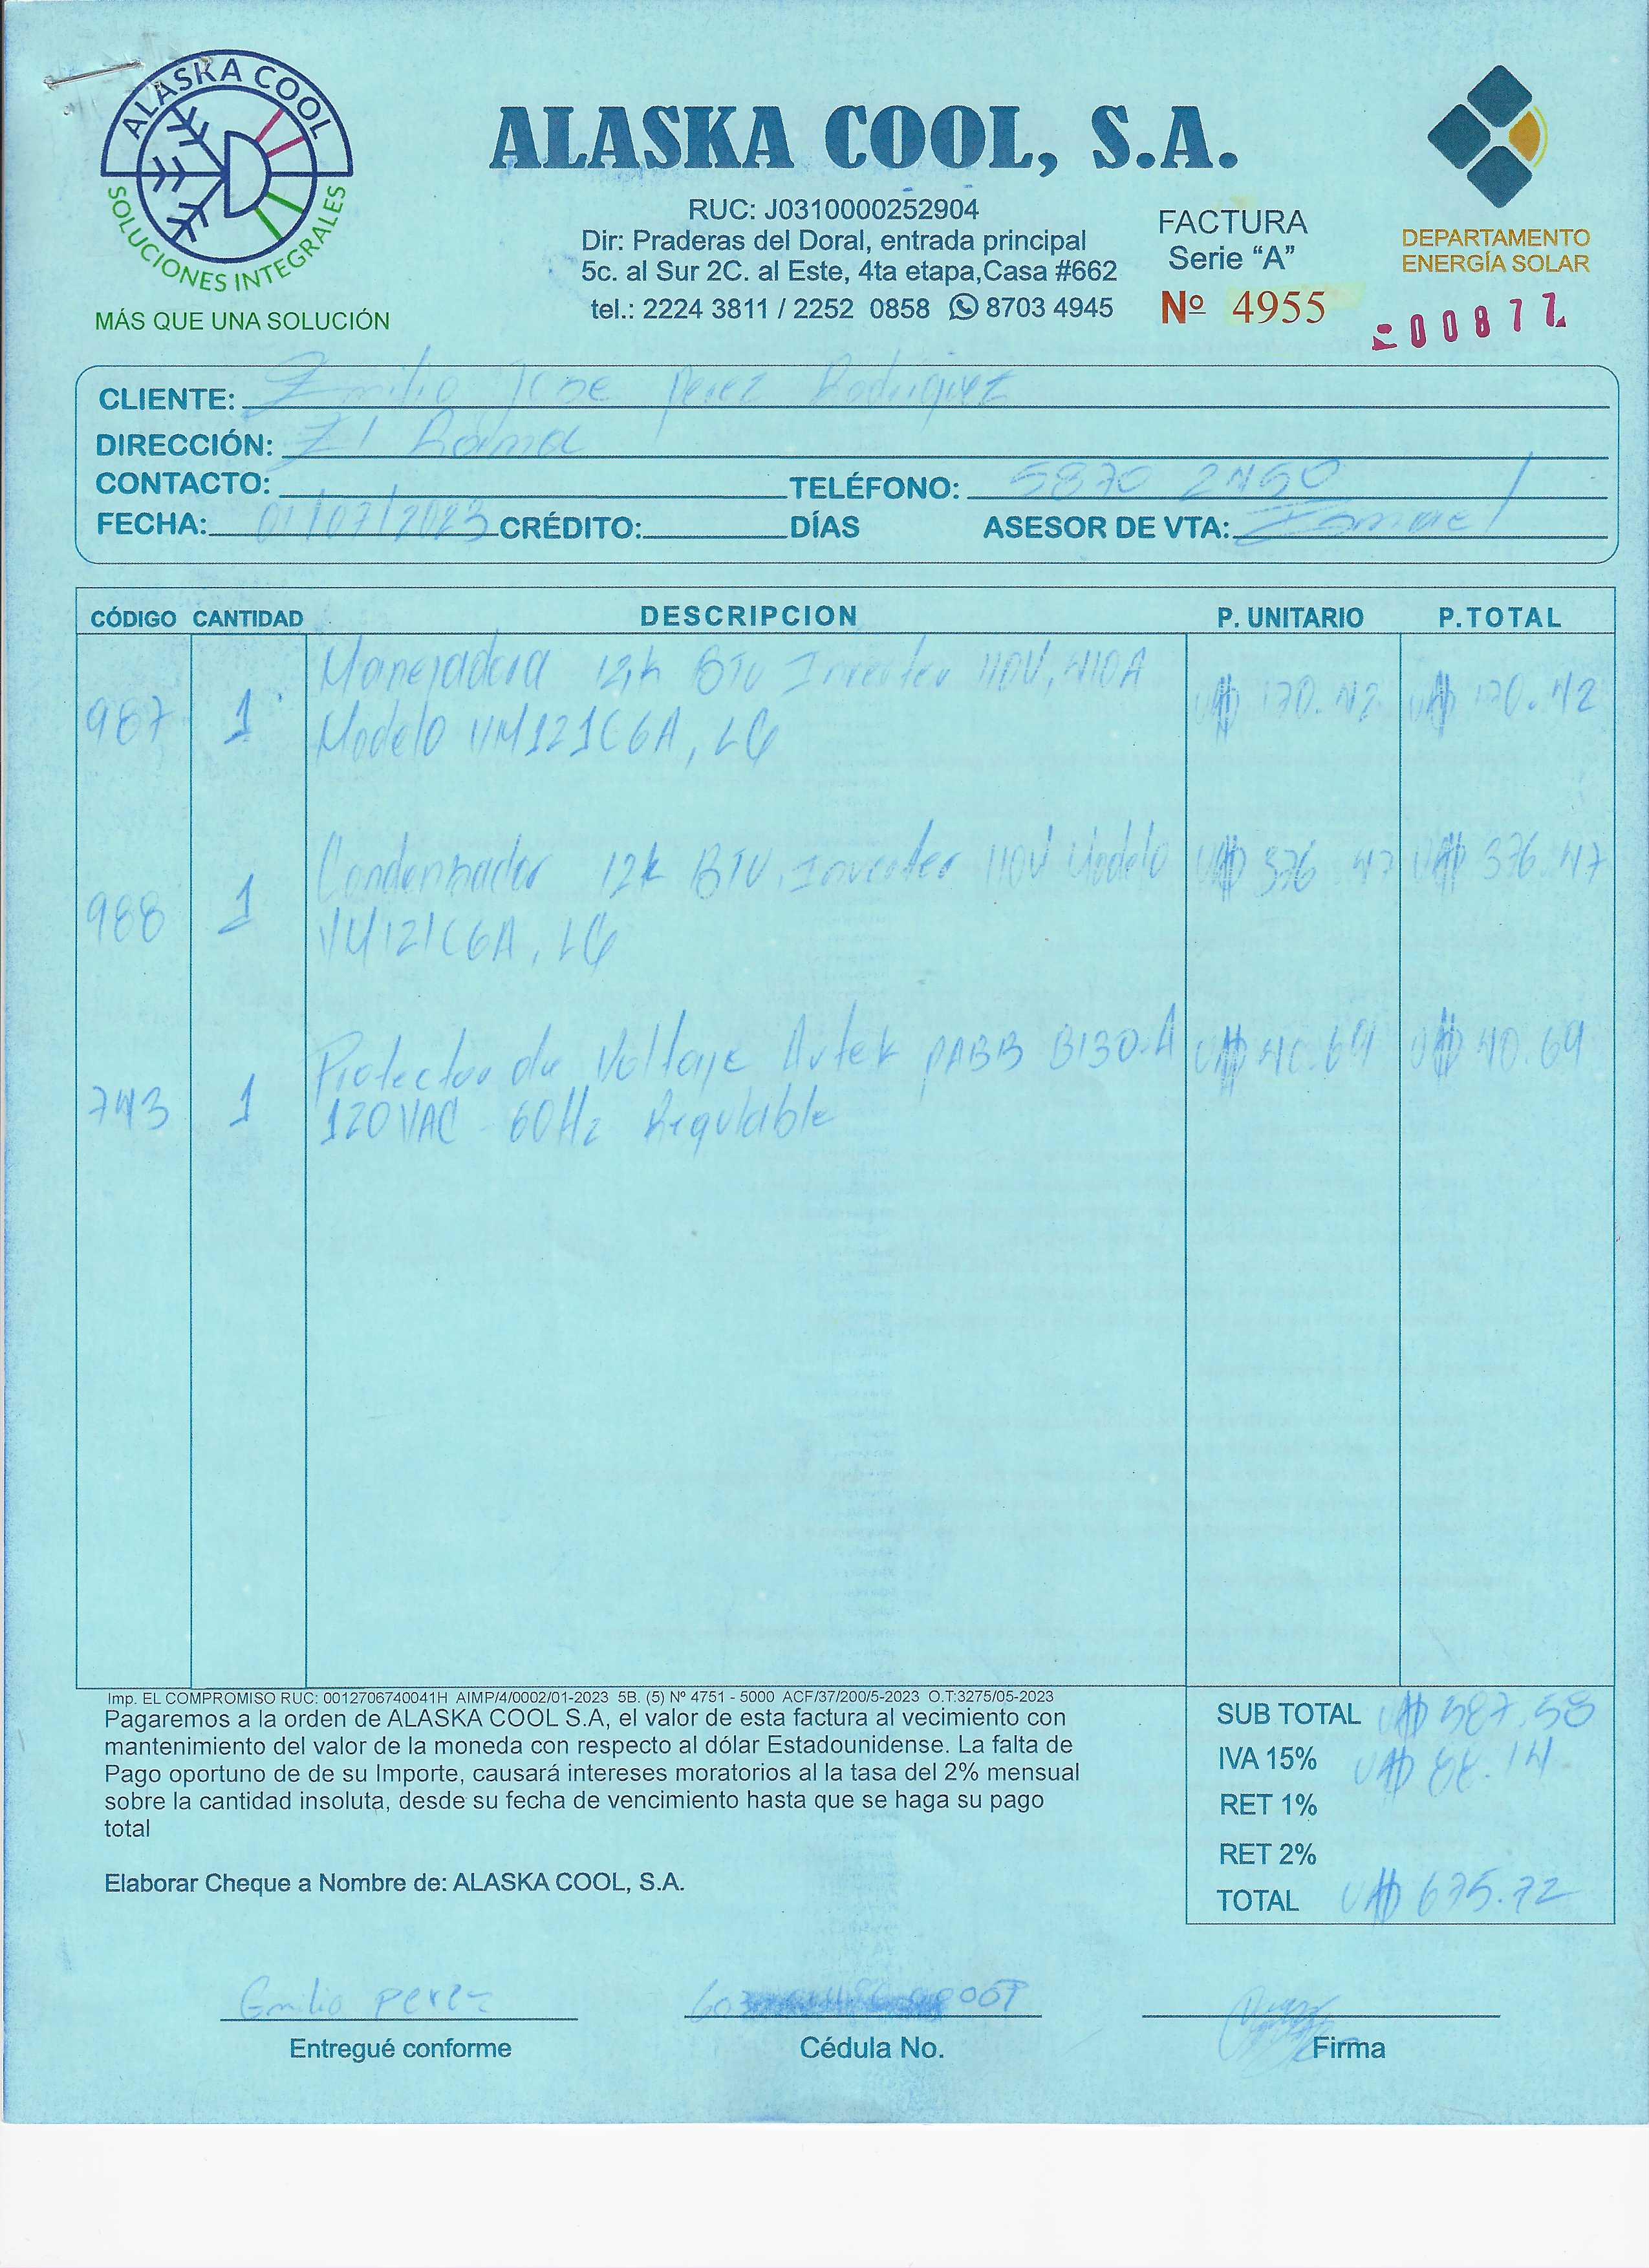 ALASKA COOL
SOLUCIONES INTEGRALES
MÁS QUE UNA SOLUCIÓN
ALASKA COOL, S.A.
RUC: J0310000252904
Dir: Praderas del Doral, entrada principal
5c. al Sur 2C. al Este, 4ta etapa,Casa #662
tel.: 2224 3811 / 2252 0858 8703 4945
FACTURA
Serie “A”
Nº 4955
DEPARTAMENTO
ENERGÍA SOLAR
00877
CLIENTE: Emilio Jose Perez Rodriguez
DIRECCIÓN: El Rama
CONTACTO: TELÉFONO: 5870 2450
FECHA: 01/07/2023 CRÉDITO: DÍAS ASESOR DE VTA: Ismael
CÓDIGO CANTIDAD DESCRIPCION P. UNITARIO P.TOTAL
Manejadora 12k BTU Inverter 110V, R410A
987 1 Modelo VM121C6A, LG U$ 170.42 U$ 170.42
Condensador 12k BTU, Inverter 110V Modelo U$ 376.47 U$ 376.47
988 1 VM121C6A, LG
Protector de Voltaje Avtek PABB B130-A U$ 40.69 U$ 40.69
743 1 120VAC - 60Hz Regulable
Imp. EL COMPROMISO RUC: 0012706740041H AIMP/4/0002/01-2023 5B. (5) Nº 4751 - 5000 ACF/37/200/5-2023 O.T:3275/05-2023
Pagaremos a la orden de ALASKA COOL S.A, el valor de esta factura al vecimiento con
mantenimiento del valor de la moneda con respecto al dólar Estadounidense. La falta de
Pago oportuno de de su Importe, causará intereses moratorios al la tasa del 2% mensual
sobre la cantidad insoluta, desde su fecha de vencimiento hasta que se haga su pago
total
Elaborar Cheque a Nombre de: ALASKA COOL, S.A.
SUB TOTAL U$ 587.58
IVA 15% U$ 88.14
RET 1%
RET 2%
TOTAL U$ 675.72
Emilio Perez
Entregué conforme
Cédula No.
Firma